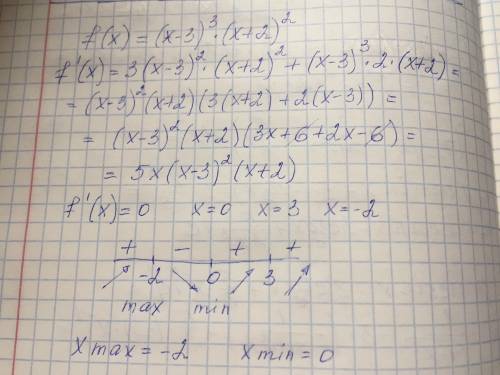 f(x) = (x-3)³·(x+2)²
f'(x) = 3(x-3)²·(x+2)² + (x-3)³·2·(x+2) =
= (x-3)²(x+2)(3(x+2) + 2(x-3)) =
= (x-3)²(x+2)(3x+6+2x-6) =
= 5x(x-3)²(x+2)
f'(x) = 0 x=0 x=3 x=-2
+ - + +
-2 0 3
max min
x max = -2 x min = 0